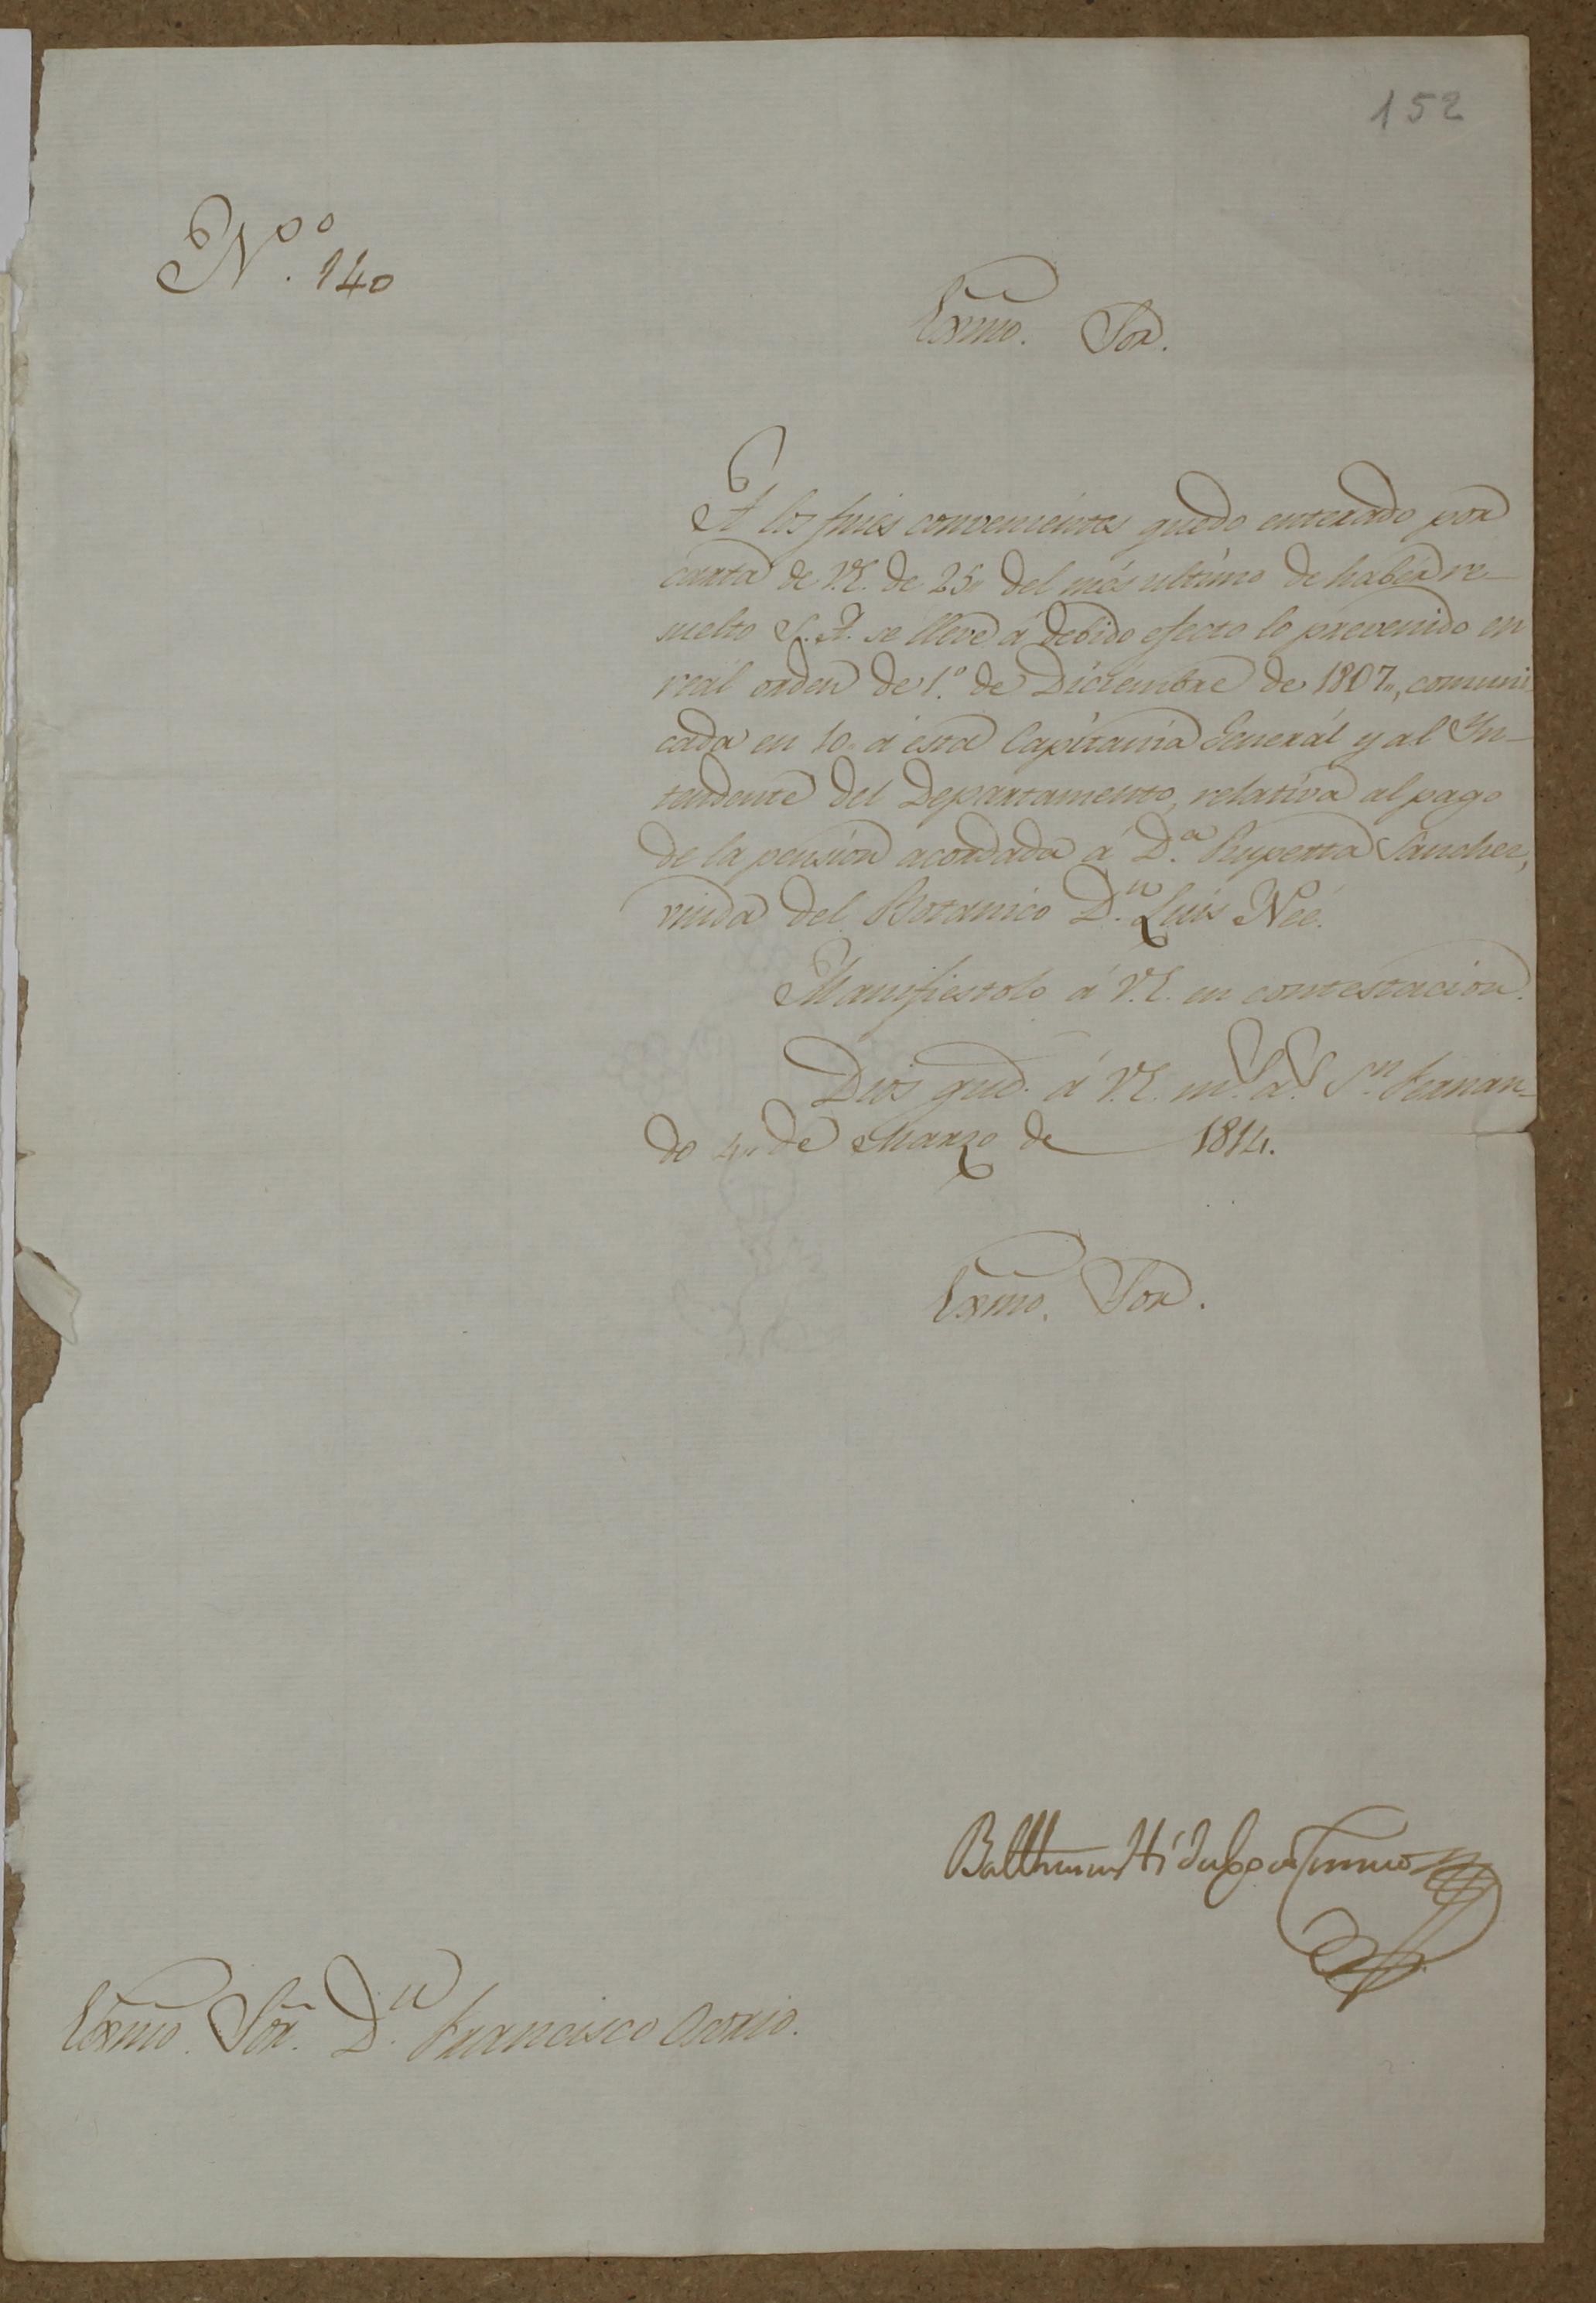 152
Nº. 140
Exmo. Sor.
A los fines convenientes quedo enterado por
carta de V.E. de 25,, del més ultimo de haber re-
suelto S.A. se lleve á debido efecto lo prevenido en
real orden de 1.º de Diciembre de 1807,,, comuni
cada en 10,, á esta Capitanía Generál y al In-
tendente del Departamento, relatíva al pago
de la pensíon acordada á D.ª Ruperta Sanchez,
viuda del Botanico D.n Luís Neé.
Manifiestolo á V.E. en contestacíon.
Dios gue. á V.E. m.s a.s S.n Fernan-
do 4,, de Marzo de 1814.
Exmo. Sor.
Exmo. Sor. D.n Francisco Osorio.